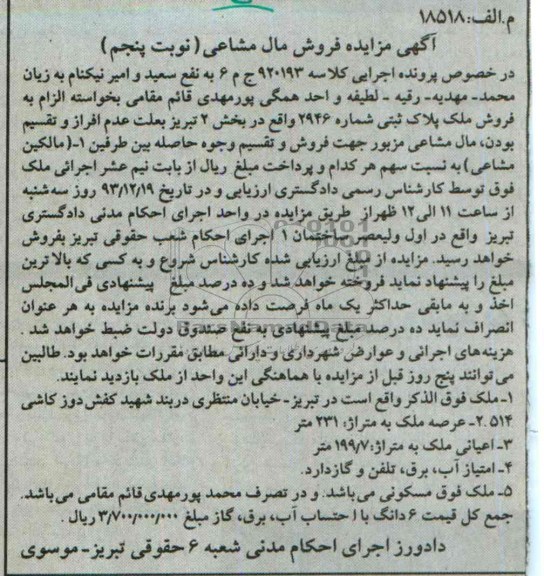 م.الف:۱۸۵۱۸
آگهی مزایده فروش مال مشاعی (نوبت پنجم)
در خصوص پرونده اجرایی کلاسه ۹۲۰۱۹۳ ج م ۶ به نفع سعید و امیر نیکنام به زیان
محمد- مهدیه- رقیه - لطیفه و احد همگی پورمهدی قائم مقامی بخواسته الزام به
فروش ملک پلاک ثبتی شماره ۲۹۴۶ واقع در بخش ۲ تبریز بعلت عدم افراز و تقسیم
بودن، مال مشاعی مزبور جهت فروش و تقسیم وجوه حاصله بین طرفین ۱-(مالکین
مشاعی) به نسبت سهم هر کدام و پرداخت مبلغ ریال از بابت نیم عشر اجرائی ملک
فوق توسط کارشناس رسمی دادگستری ارزیابی و در تاریخ ۹۳/۱۲/۱۹ روز سه شنبه
از ساعت ۱۱ الی ۱۲ ظهر از طریق مزایده در واحد اجرای احکام مدنی دادگستری
تبریز واقع در اول ولیعصر- ساختمان ۱ اجرای احکام شعب حقوقی تبریز بفروش
خواهد رسید. مزایده از مبلغ ارزیابی شده کارشناس شروع و به کسی که بالاترین
مبلغ را پیشنهاد نماید فروخته خواهد شد و ده درصد مبلغ پیشنهادی فی المجلس
اخذ و به مابقی حداکثر یک ماه فرصت داده می‌شود برنده مزایده به هر عنوان
انصراف نماید ده درصد مبلغ پیشنهادی به نفع صندوق دولت ضبط خواهد شد .
هزینه‌های اجرائی و عوارض شهرداری و دارائی مطابق مقررات خواهد بود. طالبین
می‌توانند پنج روز قبل از مزایده با هماهنگی این واحد از ملک بازدید نمایند.
۱- ملک فوق الذکر واقع است در تبریز- خیابان منتظری دربند شهید کفش دوز کاشی
۵۱۴ .۲- عرصه ملک به متراژ: ۲۳۱ متر
۳- اعیانی ملک به متراژ: ۱۹۹/۷ متر
۴- امتیاز آب، برق، تلفن و گاز دارد.
۵- ملک فوق مسکونی می‌باشد. و در تصرف محمد پورمهدی قائم مقامی می‌باشد.
جمع کل قیمت ۶ دانگ با احتساب آب، برق، گاز مبلغ ۳/۷۰۰/۰۰۰/۰۰۰ ریال .
دادورز اجرای احکام مدنی شعبه ۶ حقوقی تبریز- موسوی